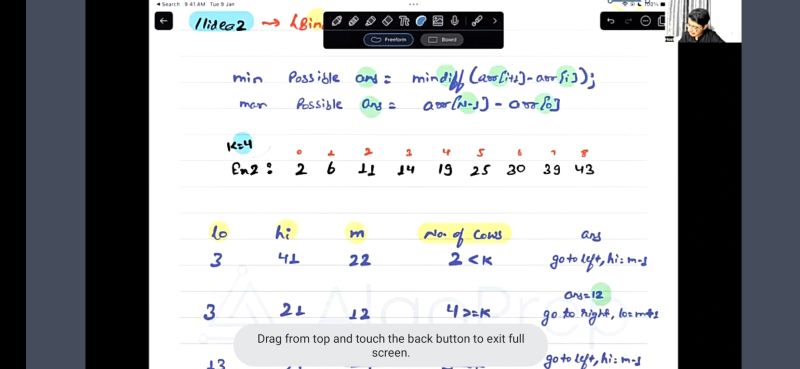 Search 9:41 AM Tue 9 Jan
100%
//idea2 → (Bin
Freeform Board
min Possible ans = mindiff(arr[i+1]-arr[i]);
max Possible ans = arr[N-1] - arr[0]
K=4
0 1 2 3 4 5 6 7 8
Ex2: 2 6 11 14 19 25 30 39 43
lo hi m No. of cows ans
3 41 22 2 < K go to left, hi=m-1
ans=12
3 21 12 4 >= K go to right, lo=m+1
AlgoPrep
Drag from top and touch the back button to exit full
screen.
13 go to left, hi=m-1